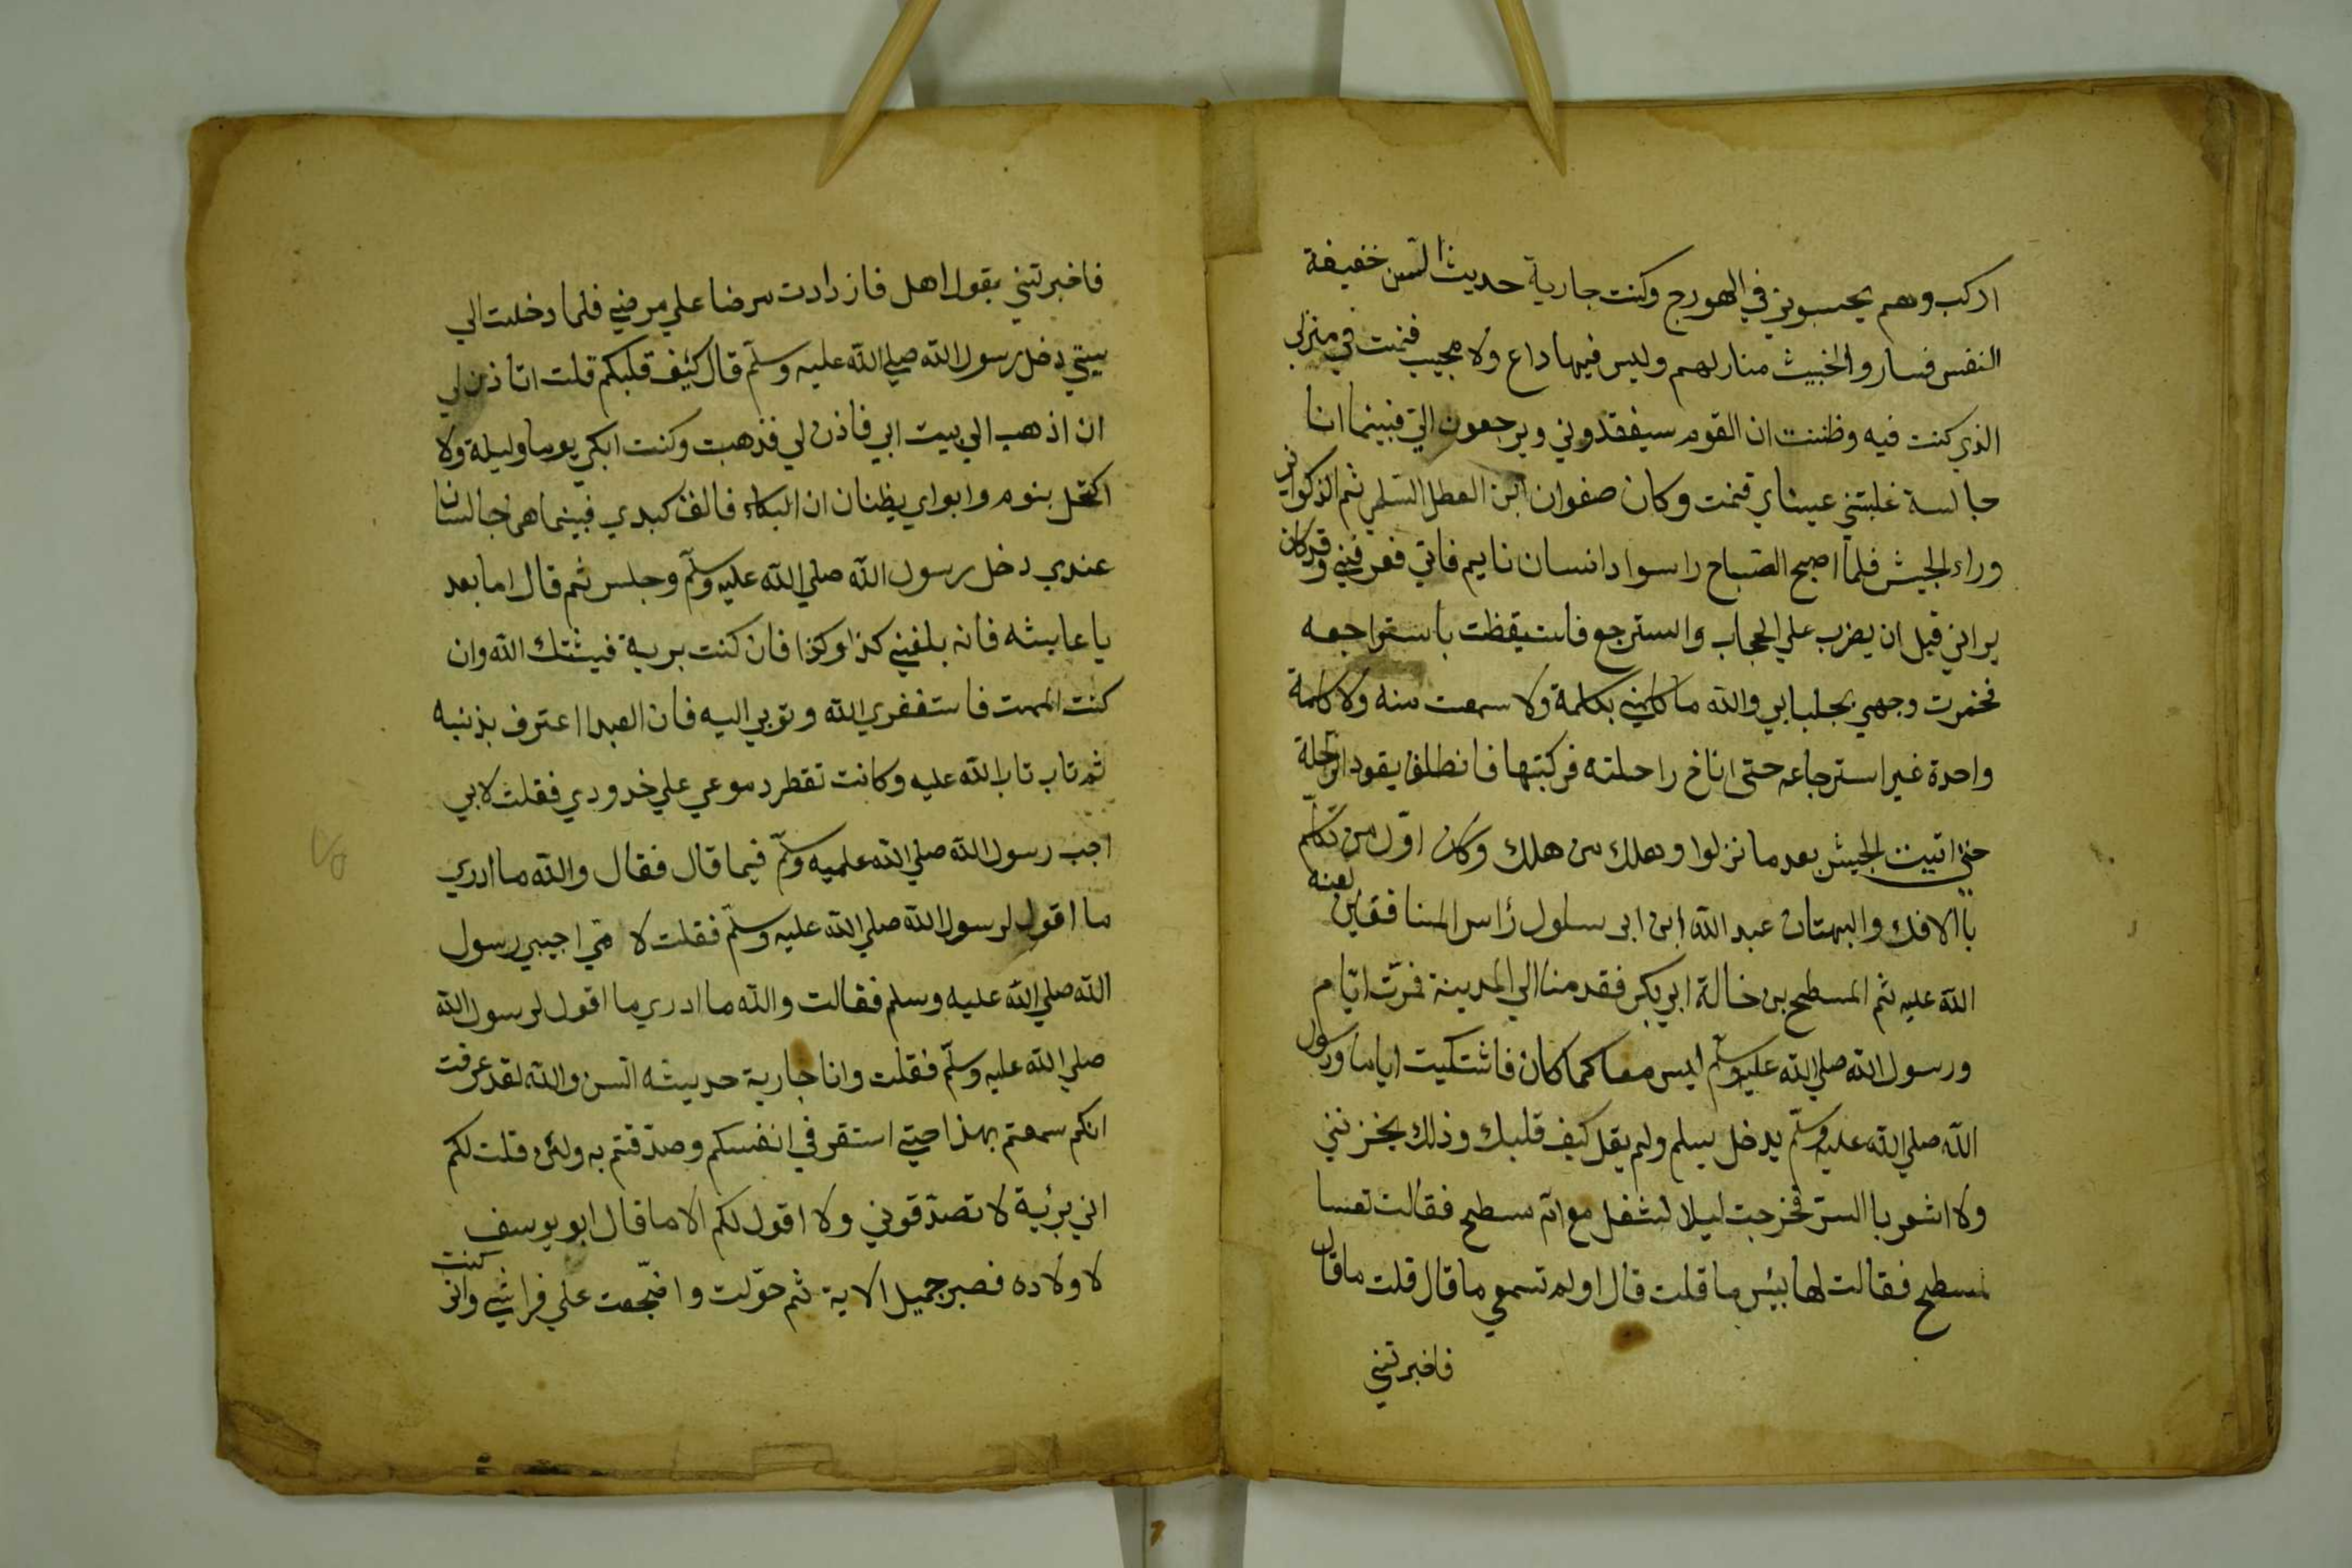 اركب وهم يحسبوني في الهورج وكنت جارية حديثا السن خفيفة
النفس فساروا الخبيث منارلهم وليس فيها داع ولا مجيب فتمت في منزلي
الذي كنت فيه وظننت ان القوم سيفقدوني ويرجعون الي فبينما انا
جالسة غلبتني عيناي فنمت وكان صفوان ابن المعطل السلمي ثم الذكواني
وراء الجيش فلما اصبح الصباح راسواد انسان نايم فاتي فعرفني وقد كان
يراني قبل ان يضرب علي الحجاب والسترجع فاستيقظت باستراجعه
فخمرت وجهي بجلبابي والله ما كلمني بكلمة ولا سمعت منه ولا كلمة
واحدة غير استرجاعه حتى اناخ راحلته فركبتها فانطلق يقود الراحلة
حتى اتيت الجيش بعد ما نزلوا وهلك من هلك وكان اول من تكلم
باالافك والبهتان عبد الله ابن ابى سلول رأس المنافقين لعنه
الله عليه ثم المسطح بن خالة ابي بكر فقدمنا الي المدينة فمرت ايام
ورسول الله صلي الله عليه وسلم ليس معا كما كان فاشتكيت اياما ورسول
الله صلي الله عليه وسلم يدخل يسلم ولم يقل كيف قلبك وذلك يحزنني
ولا اشعر باالستر فخرجت ليلا لشغل مع ام مسطح فقالت تعسا
لمسطح فقالت لها بئس ما قلت قال اولم تسمعي ما قال قلت ما قال
فاخبرتني
فاخبرتني بقول اهل فازرادت مرضا علي مرضي فلما دخلت الي
بيتي دخل رسول الله صلي الله عليه وسلم قال كيف قلبكم قلت اتاذن لي
ان اذهب الي بيت ابي فاذن لي فذهبت وكنت ابكي يوما وليلة ولا
اكتحل بنوم وابواي يظنان ان البكاء فالق كبدي فبينما هما جالسان
عندي دخل رسول الله صلي الله عليه وسلم وجلس ثم قال اما بعد
يا عايشه فانه بلغني كذا وكذا فان كنت برية فيثتك الله وان
كنت الممت فاستغفري الله وتوبي اليه فان العبد اعترف بذنبه
ثم تاب تاب الله عليه وكانت تقطر دموعي علي خدودي فقلت لابي
اجب رسول الله صلي الله علميه وسلم فيما قال فقال والله ما ادري
ما اقول لرسول الله صلي الله عليه وسلم فقلت لا مي اجيبي رسول
الله صلي الله عليه وسلم فقالت والله ما ادري ما اقول لرسول الله
صلي الله عليه وسلم فقلت وانا جارية حديثه السن والله لقد عرفت
انكم سمعتم بهذا حتي استقر في انفسكم وصدقتم به ولئن قلت لكم
اني برئية لا تصدقوني ولا اقول لكم الا ما قال ابو يوسف
لاولاده فصبر جميل الاية ثم حولت واضجعت علي فراشي واني كنت